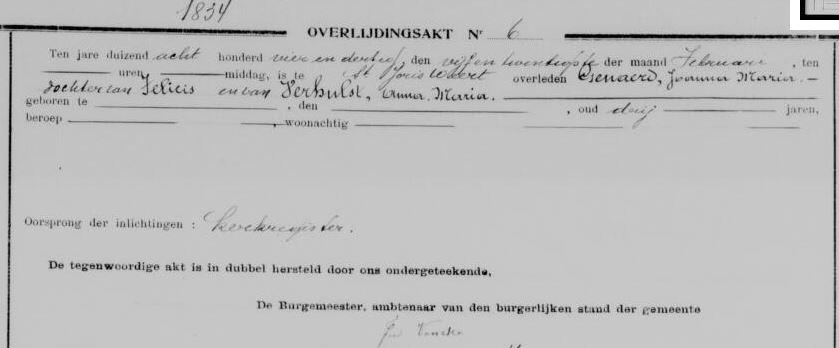 1834
OVERLIJDINGSAKT Nr 6
Ten jare duizend acht honderd vier en dertig, den vijfentwintigste der maand Februari, ten
uren middag, is te St Joris Weert overleden Genaerd, Joanna Maria. —
dochter van Felicis en van Verhulst, Anna Maria.
geboren te , den , oud drij jaren,
beroep , woonachtig
Oorsprong der inlichtingen : Kerkregister.
De tegenwoordige akt is in dubbel hersteld door ons ondergeteekende,
De Burgemeester, ambtenaar van den burgerlijken stand der gemeente